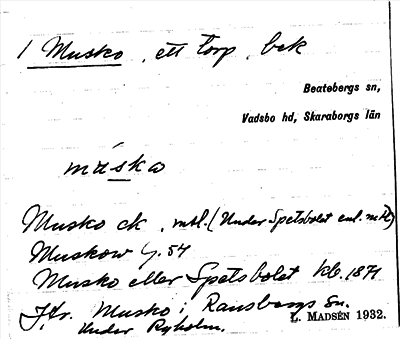 1 Musko, ett torp, bek
Beatebergs sn,
Vadsbo hd, Skaraborgs län
Musko ck, mtl. (Under Spetsbolet enl. mtl)
Muskow G. 54
Musko eller Spetsbolet kb. 1871
Jfr. Musko i Ransbergs sn.
L. MADSÉN 1932.
Under Ryholm.